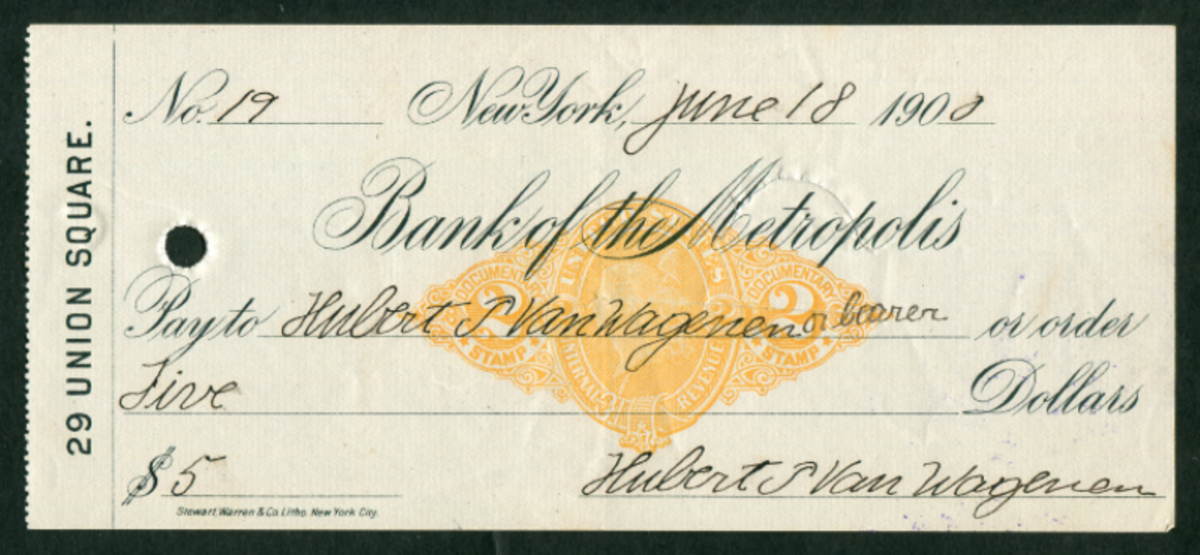 29 UNION SQUARE.
No. 19 New York, June 18 1900
Bank of the Metropolis
UNITED STATES
INTERNAL REVENUE
DOCUMENTARY 2 STAMP
DOCUMENTARY 2 STAMP
Pay to Hubert S Van Wagenen or bearer or order
Five Dollars
$5 Hubert S Van Wagenen
Stewart, Warren & Co. Litho. New York City.